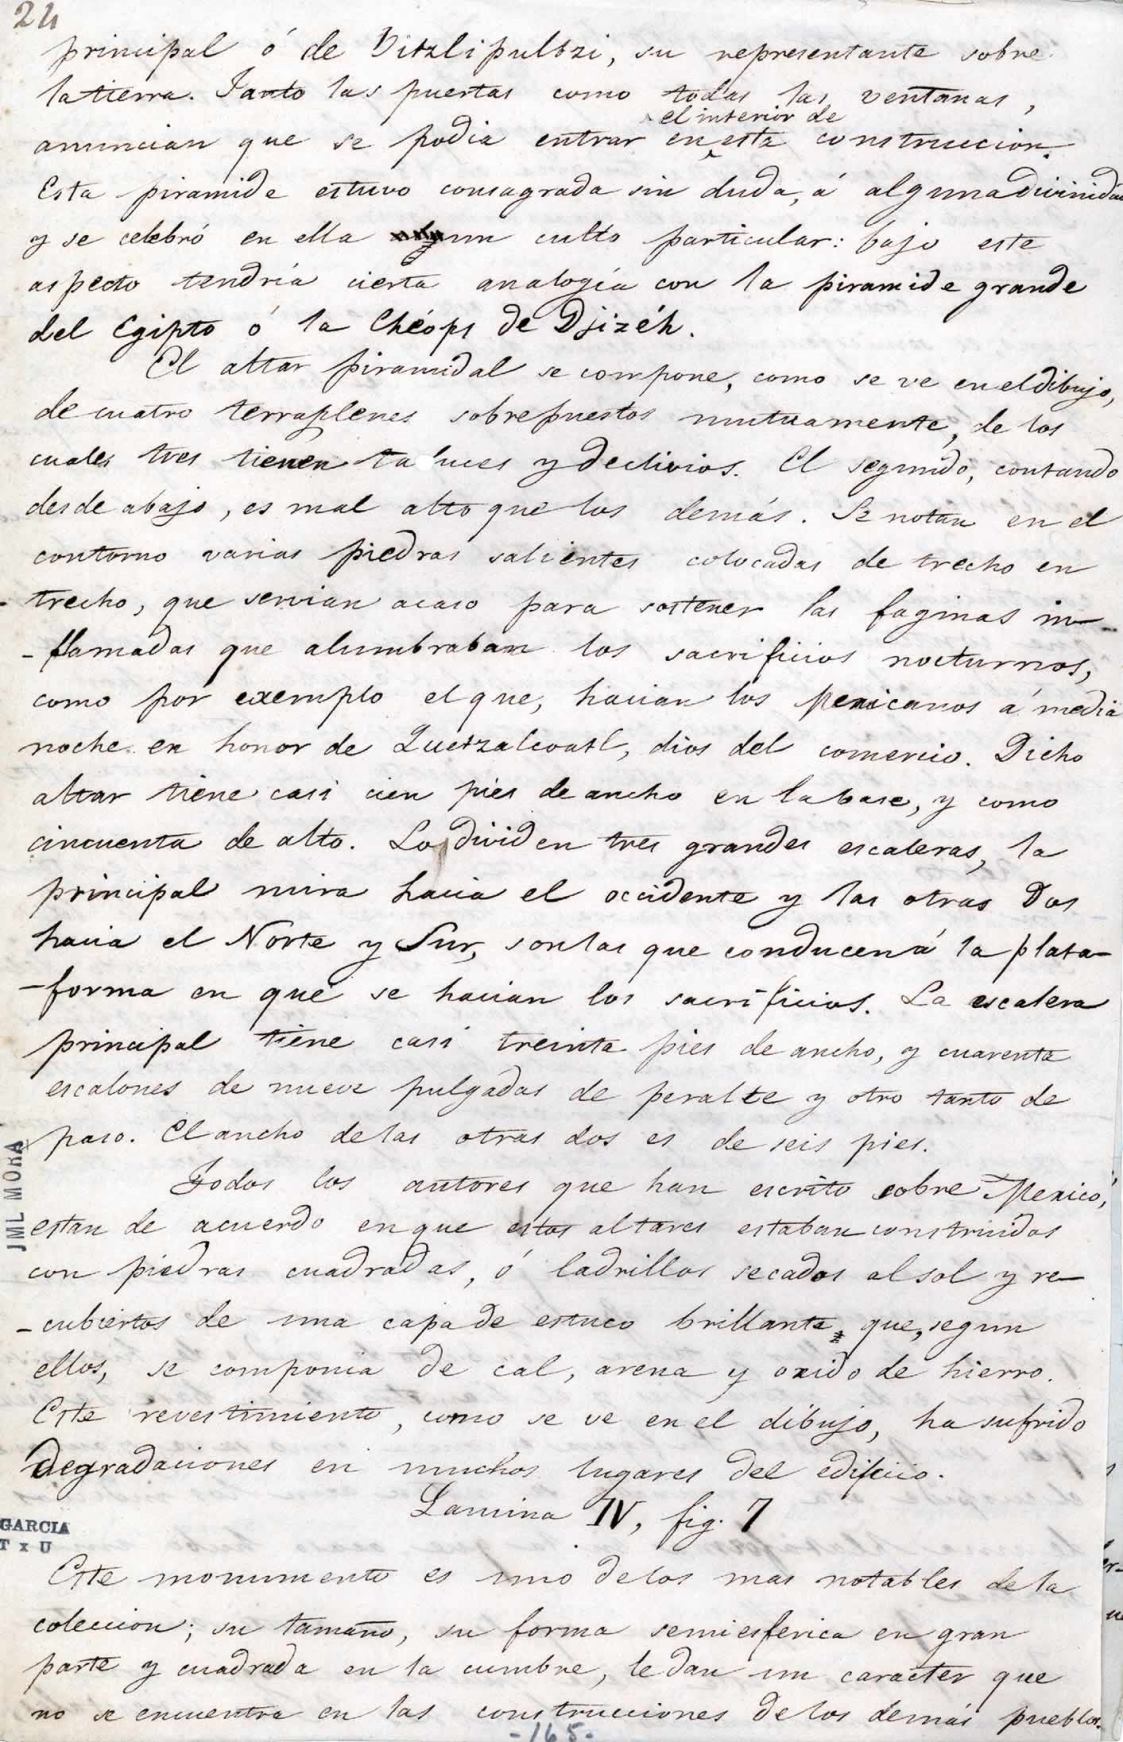 24
principal ó de Vitzlipultzi, su representante sobre
la tierra. Tanto las puertas como todas las ventanas,
el interior de
anuncian que se podia entrar en esta construccion.
Esta piramide estuvo consagrada sin duda, á alguna divinidad
y se celebró en ella un culto particular: bajo este
aspecto tendría cierta analogía con la piramide grande
del Egipto ó la Chéops de Djizéh.
El altar piramidal se compone, como se ve en el dibujo,
de cuatro terraplenes sobrepuestos mutuamente, de los
cuales tres tienen taluces y declivios. El segundo, contando
desde abajo, es mal alto que los demás. Se notan en el
contorno varias piedras salientes colocadas de trecho en
trecho, que servian acaso para sostener las faginas in-
-flamadas que alumbraban los sacrificios nocturnos,
como por exemplo el que, hacian los Mexicanos á media
noche en honor de Quetzalcoatl, dios del comercio. Dicho
altar tiene casi cien pies de ancho en la base, y como
cincuenta de alto. Lo dividen tres grandes escaleras, la
principal mira hacia el occidente y las otras dos
hacia el Norte y Sur, son las que conducen á la plata-
-forma en que se hacian los sacrificios. La escalera
principal tiene casi treinta pies de ancho, y cuarenta
escalones de nueve pulgadas de peralte y otro tanto de
paso. El ancho de las otras dos es de seis pies.
Todos los autores que han escrito sobre Mexico,
estan de acuerdo en que estos altares estaban construidos
con piedras cuadradas, ó ladrillos secados al sol y re-
-cubiertos de una capa de estuco brillante, que, segun
ellos, se componia de cal, arena y oxido de hierro.
Este revestimiento, como se ve en el dibujo, ha sufrido
degradaciones en muchos lugares del edificio.
Lamina IV, fig. 7
Este monumento es uno de los mas notables de la
coleccion; su tamaño, su forma semiesferica en gran
parte y cuadrada en la cumbre, le dan un caracter que
no se encuentra en las construcciones de los demás pueblos.
-165-
JML MORA
GARCIA
T x U